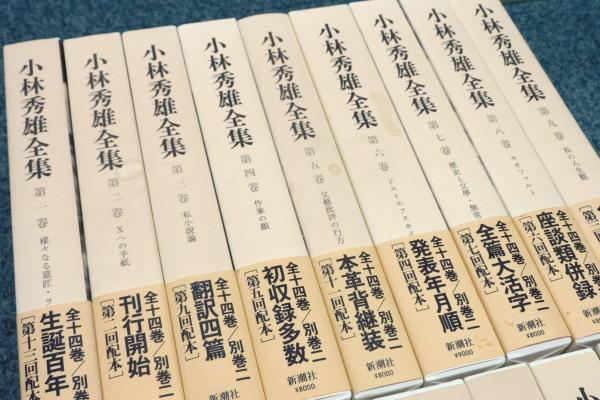 小林秀雄全集
第一巻 様々なる意匠・ラ
全十四巻/別巻二
生誕百年
[第十三回配本]
小林秀雄全集
第二巻 Xへの手紙
全十四巻/別巻二
刊行開始
[第二回配本]
小林秀雄全集
第三巻 私小説論
全十四巻/別巻二
翻訳四篇
[第九回配本]
小林秀雄全集
第四巻 作家の顔
全十四巻/別巻二
初収録多数
[第五回配本]
新潮社
¥8000
小林秀雄全集
第五巻 文藝批評の行方
全十四巻/別巻二
本革背継装
[第十一回配本]
新潮社
¥8000
小林秀雄全集
第六巻 ドストエフスキイ
全十四巻/別巻二
発表年月順
[第四回配本]
新潮社
¥9000
小林秀雄全集
第七巻 歴史と文學・無常
全十四巻/別巻二
全篇大活字
[第七回配本]
新潮社
¥8000
小林秀雄全集
第八巻 モオツァルト
全十四巻/別巻二
座談類併録
[第六回配本]
新潮社
¥8000
小林秀雄全集
第九巻 私の人生観